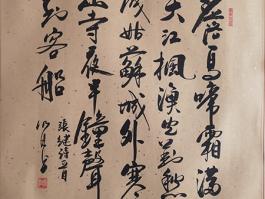 落烏啼霜滿
天江楓漁火對愁
眠姑蘇城外寒
山寺夜半鐘聲
到客船
張繼詩一首